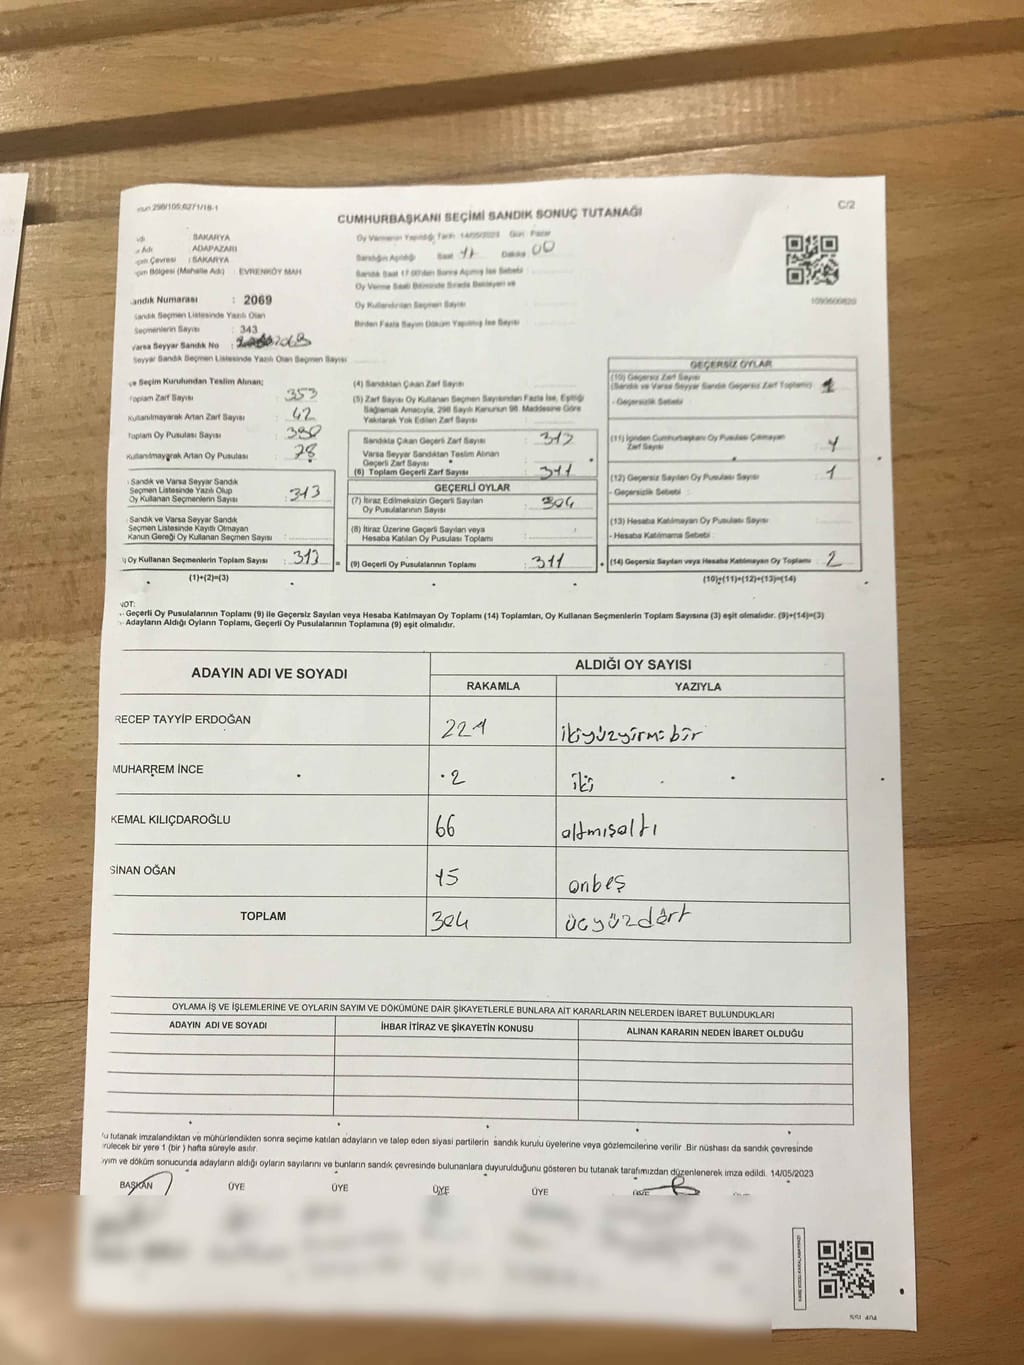 298/105;6271/18-1
C/2
CUMHURBAŞKANI SEÇİMİ SANDIK SONUÇ TUTANAĞI
: SAKARYA
Adı : ADAPAZARI
Çevresi : SAKARYA
Bölgesi (Mahalle Adı) : EVRENKÖY MAH
Oy Vermenin Yapıldığı Tarih 14/05/2023 Gün: Pazar
Sandığın Açıldığı Saat 17 Dakika 00
Sandık Saat 17.00'den Sonra Açılmış İse Sebebi
Oy Verme Saati Bitiminde Sırada Bekleyen ve
Oy Kullandırılan Seçmen Sayısı
Birden Fazla Sayım Döküm Yapılmış İse Sayısı
Sandık Numarası : 2069
Sandık Seçmen Listesinde Yazılı Olan
Seçmenlerin Sayısı : 343
Varsa Seyyar Sandık No : 2068
Seyyar Sandık Seçmen Listesinde Yazılı Olan Seçmen Sayısı
İlçe Seçim Kurulundan Teslim Alınan;
Toplam Zarf Sayısı : 353
Kullanılmayarak Artan Zarf Sayısı : 42
Toplam Oy Pusulası Sayısı : 390
Kullanılmayarak Artan Oy Pusulası : 78
Sandık ve Varsa Seyyar Sandık
Seçmen Listesinde Yazılı Olup
Oy Kullanan Seçmenlerin Sayısı : 313
Sandık ve Varsa Seyyar Sandık
Seçmen Listesinde Kayıtlı Olmayan
Kanun Gereği Oy Kullanan Seçmen Sayısı :
Oy Kullanan Seçmenlerin Toplam Sayısı : 313
(1)+(2)=(3)
(4) Sandıktan Çıkan Zarf Sayısı :
(5) Zarf Sayısı Oy Kullanan Seçmen Sayısından Fazla İse, Eşitliği
Sağlamak Amacıyla, 298 Sayılı Kanunun 98. Maddesine Göre
Yakılarak Yok Edilen Zarf Sayısı :
Sandıkta Çıkan Geçerli Zarf Sayısı : 312
Varsa Seyyar Sandıktan Teslim Alınan
Geçerli Zarf Sayısı :
(6) Toplam Geçerli Zarf Sayısı : 311
GEÇERLİ OYLAR
(7) İtiraz Edilmeksizin Geçerli Sayılan
Oy Pusulalarının Sayısı : 304
(8) İtiraz Üzerine Geçerli Sayılan veya
Hesaba Katılan Oy Pusulası Toplamı :
(9) Geçerli Oy Pusulalarının Toplamı : 311
GEÇERSİZ OYLAR
(10) Geçersiz Zarf Sayısı
(Sandık ve Varsa Seyyar Sandık Geçersiz Zarf Toplamı) :
- Geçersizlik Sebebi :
(11) İçinden Cumhurbaşkanı Oy Pusulası Çıkmayan
Zarf Sayısı : 1
(12) Geçersiz Sayılan Oy Pusulası Sayısı : 1
- Geçersizlik Sebebi :
(13) Hesaba Katılmayan Oy Pusulası Sayısı :
- Hesaba Katılmama Sebebi :
(14) Geçersiz Sayılan veya Hesaba Katılmayan Oy Toplamı : 2
(10)+(11)+(12)+(13)=(14)
NOT:
- Geçerli Oy Pusulalarının Toplamı (9) ile Geçersiz Sayılan veya Hesaba Katılmayan Oy Toplamı (14) Toplamları, Oy Kullanan Seçmenlerin Toplam Sayısına (3) eşit olmalıdır. (9)+(14)=(3)
- Adayların Aldığı Oyların Toplamı, Geçerli Oy Pusulalarının Toplamına (9) eşit olmalıdır.
ADAYIN ADI VE SOYADI ALDIĞI OY SAYISI
RAKAMLA YAZIYLA
RECEP TAYYİP ERDOĞAN 221 ikiyüzyirmibir
MUHARREM İNCE 2 iki
KEMAL KILIÇDAROĞLU 66 altmışaltı
SİNAN OĞAN 15 onbeş
TOPLAM 304 üçyüzdört
OYLAMA İŞ VE İŞLEMLERİNE VE OYLARIN SAYIM VE DÖKÜMÜNE DAİR ŞİKAYETLERLE BUNLARA AİT KARARLARIN NELERDEN İBARET BULUNDUKLARI
ADAYIN ADI VE SOYADI İHBAR İTİRAZ VE ŞİKAYETİN KONUSU ALINAN KARARIN NEDEN İBARET OLDUĞU
tutanak imzalandıktan ve mühürlendikten sonra seçime katılan adayların ve talep eden siyasi partilerin sandık kurulu üyelerine veya gözlemcilerine verilir. Bir nüshası da sandık çevresinde
bir yere 1 (bir) hafta süreyle asılır.
ve döküm sonucunda adayların aldığı oyların sayılarını ve bunların sandık çevresinde bulunanlara duyurulduğunu gösteren bu tutanak tarafımızdan düzenlenerek imza edildi. 14/05/2023
BAŞKAN ÜYE ÜYE ÜYE ÜYE ÜYE